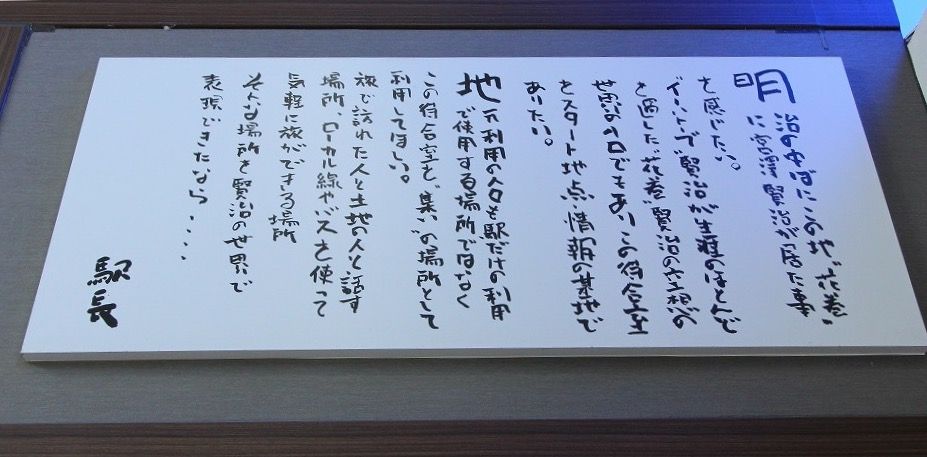 明治の中ばにこの地”花巻”
に宮澤賢治が居た事
を感じたい。
イーハトーブ”賢治が生涯のほとんど
を過した”花巻”賢治の空想の
世界の入口でもあり この待合室
をスタート地点・情報の基地で
ありたい。
地元利用の人々も駅だけの利用
で使用する場所ではなく
この待合室を”集い”の場所として
利用してほしい。
旅で訪れた人と土地の人と話す
場所、ローカル線やバスを使って
気軽に旅ができる場所
そんな場所を賢治の世界で
表現できたなら・・・・
駅長